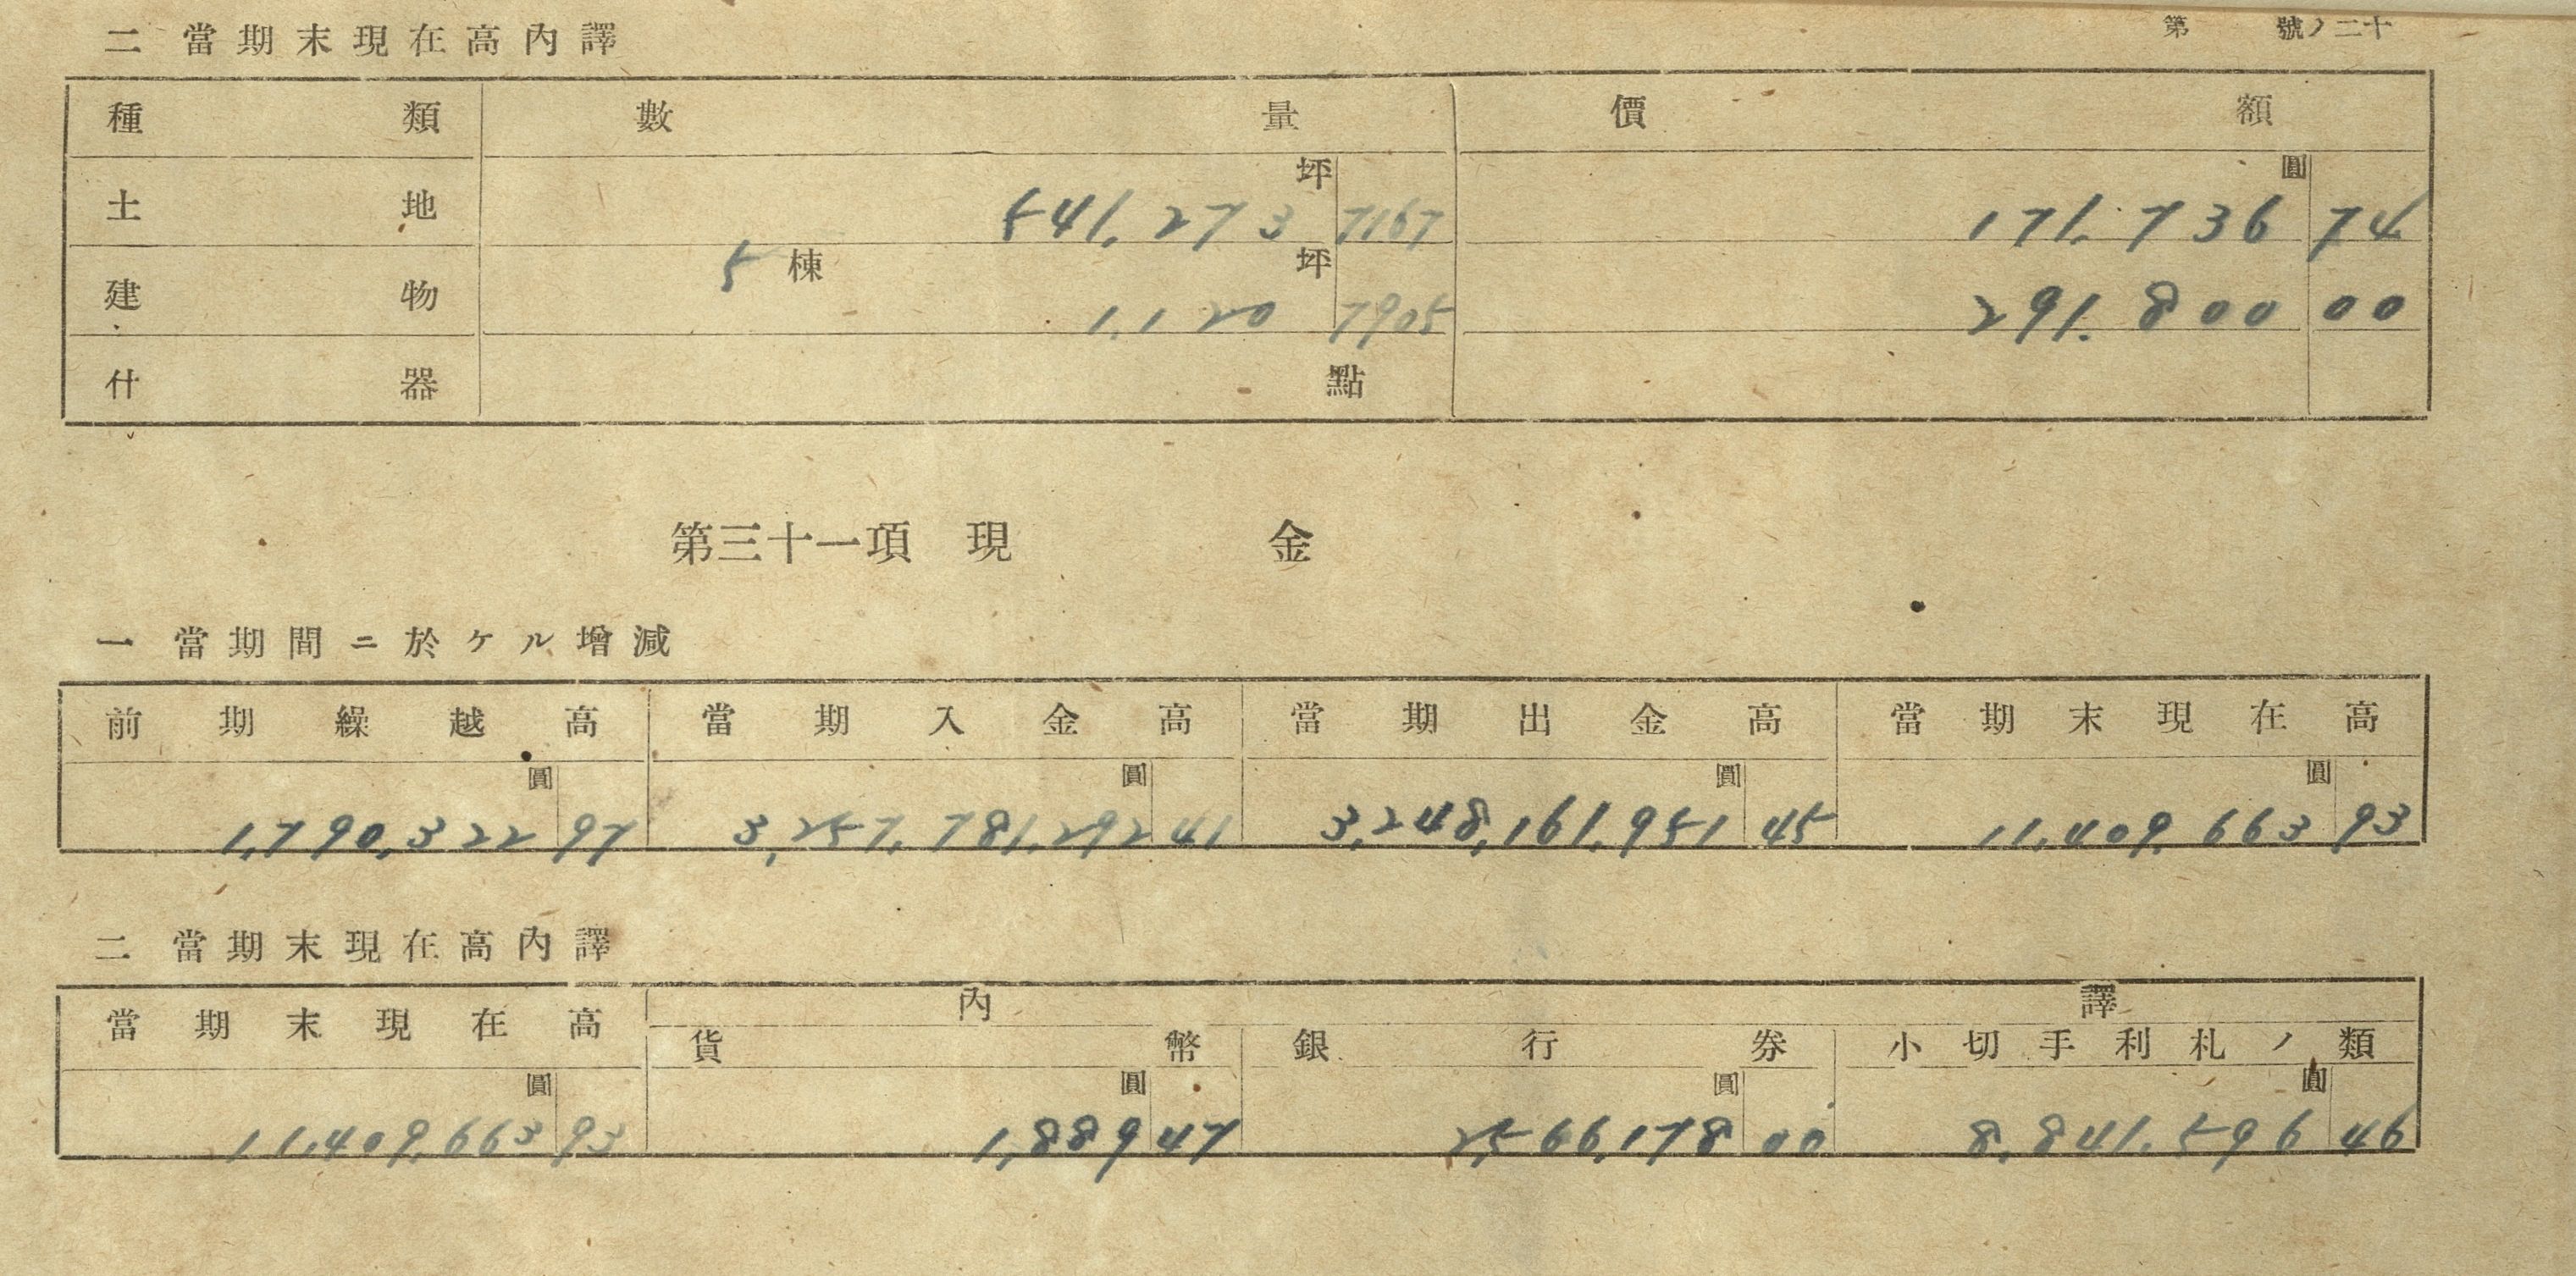 二 當期末現在高內譯
第 號ノ二十
種類 數量 價額
坪 圓
土地 541,273 7167 171,736 74
5棟 坪
建物 1,120 7905 291,800 00
什器 點
第三十一項 現金
一 當期間ニ於ケル增減
前期繰越高 當期入金高 當期出金高 當期末現在高
圓 圓 圓 圓
1,790,322 97 3,257,781,292 41 3,248,161,951 45 11,409,663 93
二 當期末現在高內譯
當期末現在高 內譯
貨幣 銀行券 小切手利札ノ類
圓 圓 圓 圓
11,409,663 93 1,889 47 2,566,178 00 8,841,596 46